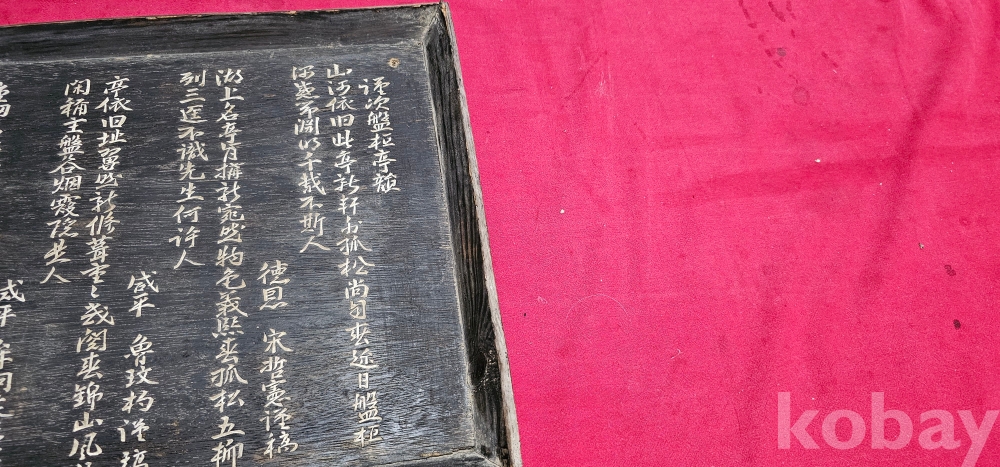 謹次盤桓亭額
山河依旧此亭新軒 孤松尚 春近日盤桓
千載不斯人
德恩 宋哲憲謹稿
湖上名亭肯搆新宛然物色義熙春孤松五柳
列三逕不識先生何許人
咸平 魯玟杓謹稿
亭依旧址翼然新修葺重〻幾閱春錦山風
閑稱主盤谷烟霞隐是人
咸平
kobay